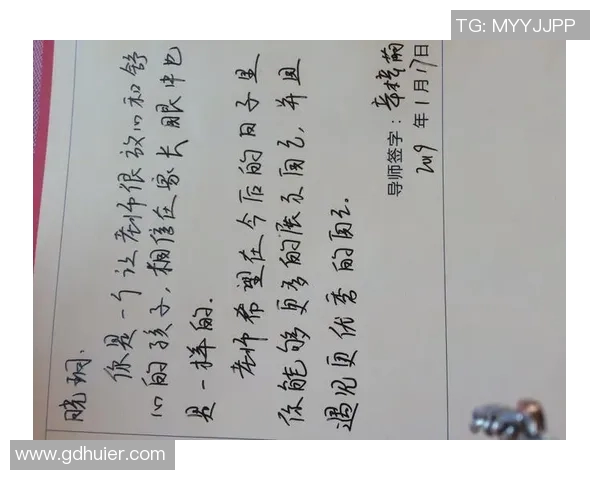 TG: MYYJJPP
晓珊:
你是一个让老师很放心和舒
心的孩子,相信在家长眼中也
是一样的.
老师希望在今后的日子里
你能够更多的展示自己,并且
遇见更优秀的自己.
导师签字:
2019 年 1 月 17 日
www.gdhuier.com